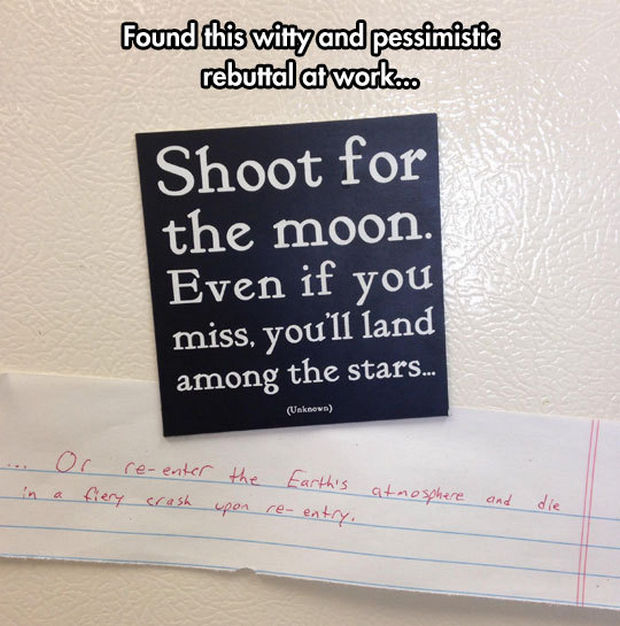 Found this witty and pessimistic
rebuttal at work...
Shoot for
the moon.
Even if you
miss, you'll land
among the stars...
(Unknown)
... Or re-enter the Earth's atmosphere and die
in a fiery crash upon re-entry.